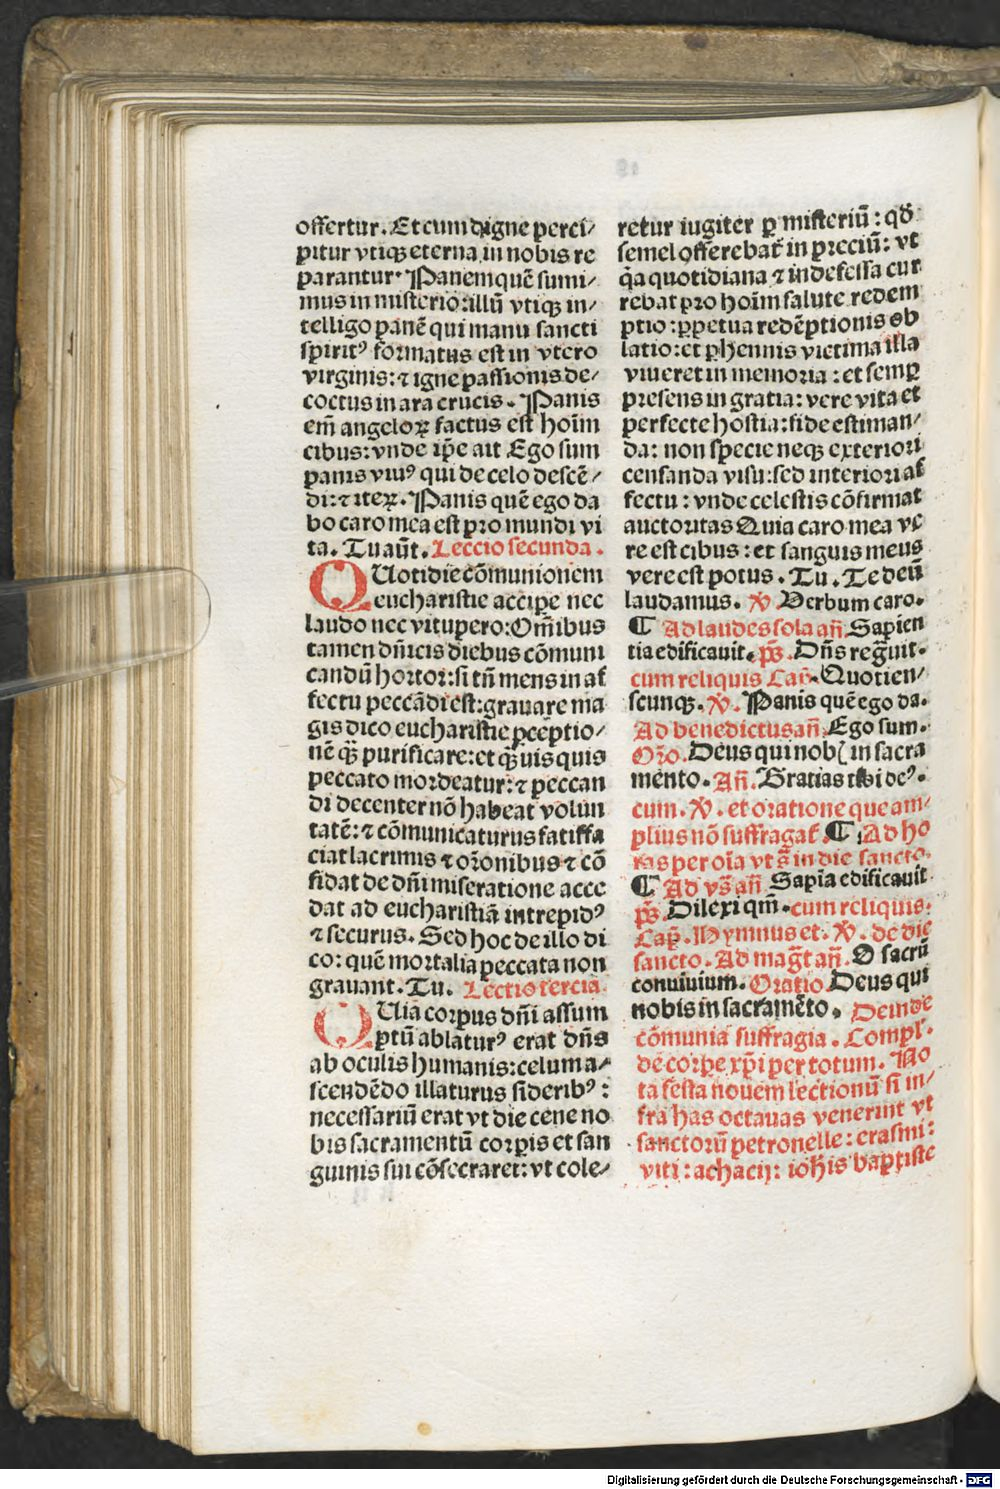 offertur. Et cum digne perci⸗
pitur vtiqꝫ eterna in nobis re
parantur. Panem quē sumi⸗
mus in misterio: illū vtiqꝫ in⸗
telligo panē qui manu sancti
spiritꝰ formatus est in vtero
virginis: ⁊ igne passionis de⸗
coctus in ara crucis. Panis
em̄ angeloꝝ factus est hoīm
cibus: vnde ip̄e ait Ego sum
panis viuꝰ qui de celo descē⸗
di: ⁊ iteꝝ. Panis quē ego da
bo caro mea est pro mundi vi
ta. Tu aūt. Leccio secunda.
QUotidie cōmunionem
eucharistie accipe nec
laudo nec vitupero: Om̄ibus
tamen dn̄icis diebus cōmuni
candū hortor: si tn̄ mens in af
fectu peccādi est: grauare ma
gis dico eucharistie ꝑceptio⸗
nē qꝫ̄ purificare: et qꝫ̄uis quis
peccato mordeatur: ⁊ peccan
di decenter nō habeat volun
tatē: ⁊ cōmunicaturus satiffa
ciat lacrimis ⁊ or̄onibus ⁊ cō
fidat de dn̄i miseratione acce
dat ad eucharistiā intrepidꝰ
⁊ securus. Sed hoc de illo di
co: quē mortalia peccata non
grauant. Tu. Lectio tercia
QUia corpus dn̄i assum
ptū ablaturꝰ erat dn̄s
ab oculis humanis: celum a⸗
scendēdo illaturus sideribꝰ:
necessariū erat vt die cene no
bis sacramentū corꝑis et san
guinis sui cōsecraret: vt cole⸗
retur iugiter ꝑ misteriū: qđ
semel offerebat̄ in preciū: vt
q̄a quotidiana ⁊ indefessa cur
rebat pro hoīm salute redem
ptio: ꝑpetua redēptionis ob
latio: et ꝑhennis victima illa
viueret in memoria: et semꝑ
presens in gratia: vere vita et
perfecte hostia: fide estiman⸗
da: non specie neqꝫ exteriori
censanda visu: sed interiori af
fectu: vnde celestis cōfirmat
auctoritas Quia caro mea ve
re est cibus: et sanguis meus
vere est potus. Tu. Te deū
laudamus. ℣ Verbum caro.
¶ Ad laudes sola an̄. Sapien
tia edificauit. p̄s. Dn̄s regͣuit.
cum reliquis Cap̄. Quotien⸗
scunqꝫ. ℣. Panis quē ego da.
Ad benedictus an̄ Ego sum.
Or̄o. Deus qui nob̄ in sacra
mento. An̄. Gratias tibi deꝰ.
cum. ℣. et oratione que am⸗
plius nō suffragat̄. ¶ Ad ho
ras per oīa vt sͣ in die sancto.
¶ Ad vs̄ an̄ Sapīa edificauit
p̄s. Dilexi qm̄. cum reliquis.
Cap̄. Hymnus et. ℣. de die
sancto. Ad mag̅t an̄. O sacrū
conuiuium. Oratio Deus qui
nobis in sacramēto. Deinde
cōmunia suffragia. Compl̄.
de corꝑe xp̄i per totum. No
ta festa nouem lectionū si in⸗
fra has octauas venerint vt
sanctorū petronelle: erasmi:
viti: achacij: ioh̄is baptiste
Digitalisierung gefördert durch die Deutsche Forschungsgemeinschaft - DFG